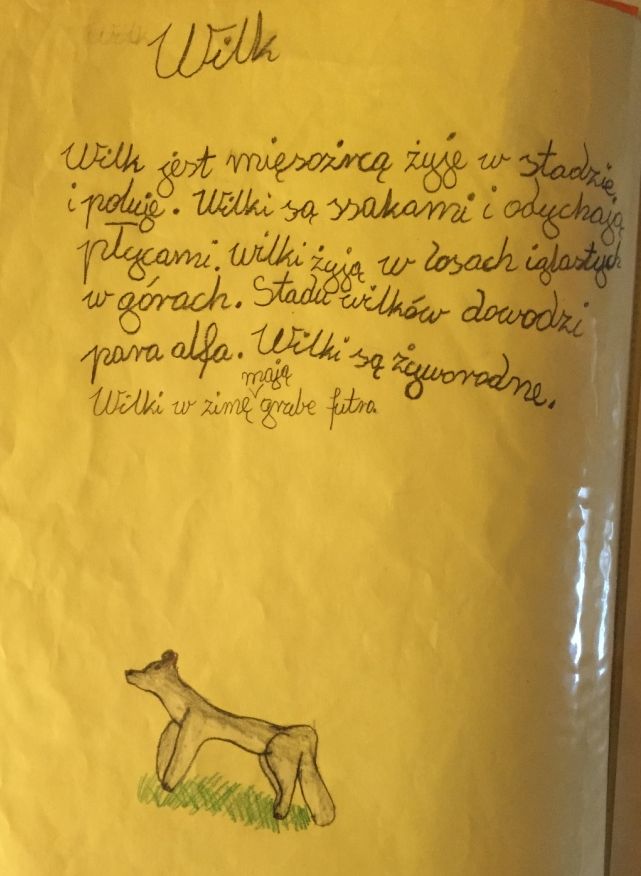 Wilk
Wilk jest mięsożercą żyje w stadzie.
i poluje. Wilki są ssakami i odychają
płycami. wilki żyją w losach iglastych
w górach. Stadu wilków dowodzi
para alfa. Wilki są żyworodne.
mają
Wilki w zimę grube futra